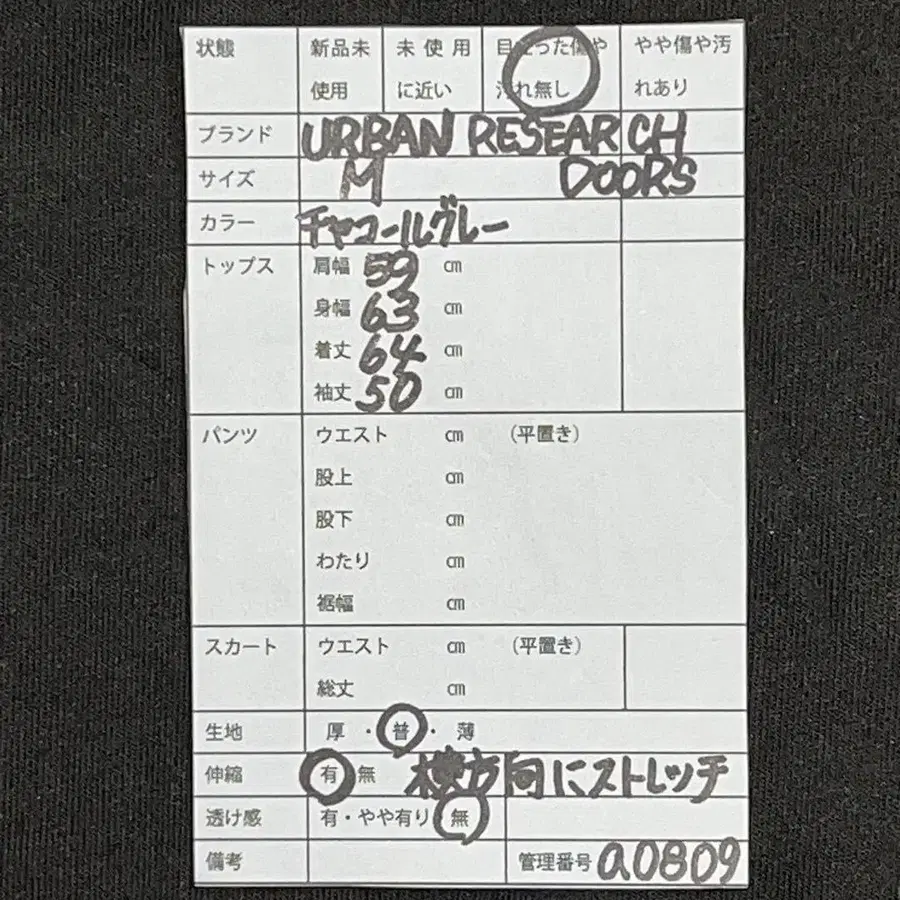 状態 新品未使用 未使用に近い 目立った傷や汚れ無し やや傷や汚れあり
ブランド URBAN RESEARCH
サイズ M DOORS
カラー チャコールグレー
トップス 肩幅 59 cm
身幅 63 cm
着丈 64 cm
袖丈 50 cm
パンツ ウエスト cm (平置き)
股上 cm
股下 cm
わたり cm
裾幅 cm
スカート ウエスト cm (平置き)
総丈 cm
生地 厚・普・薄
伸縮 有 無 横方向にストレッチ
透け感 有・やや有り・無
備考 管理番号 a0809